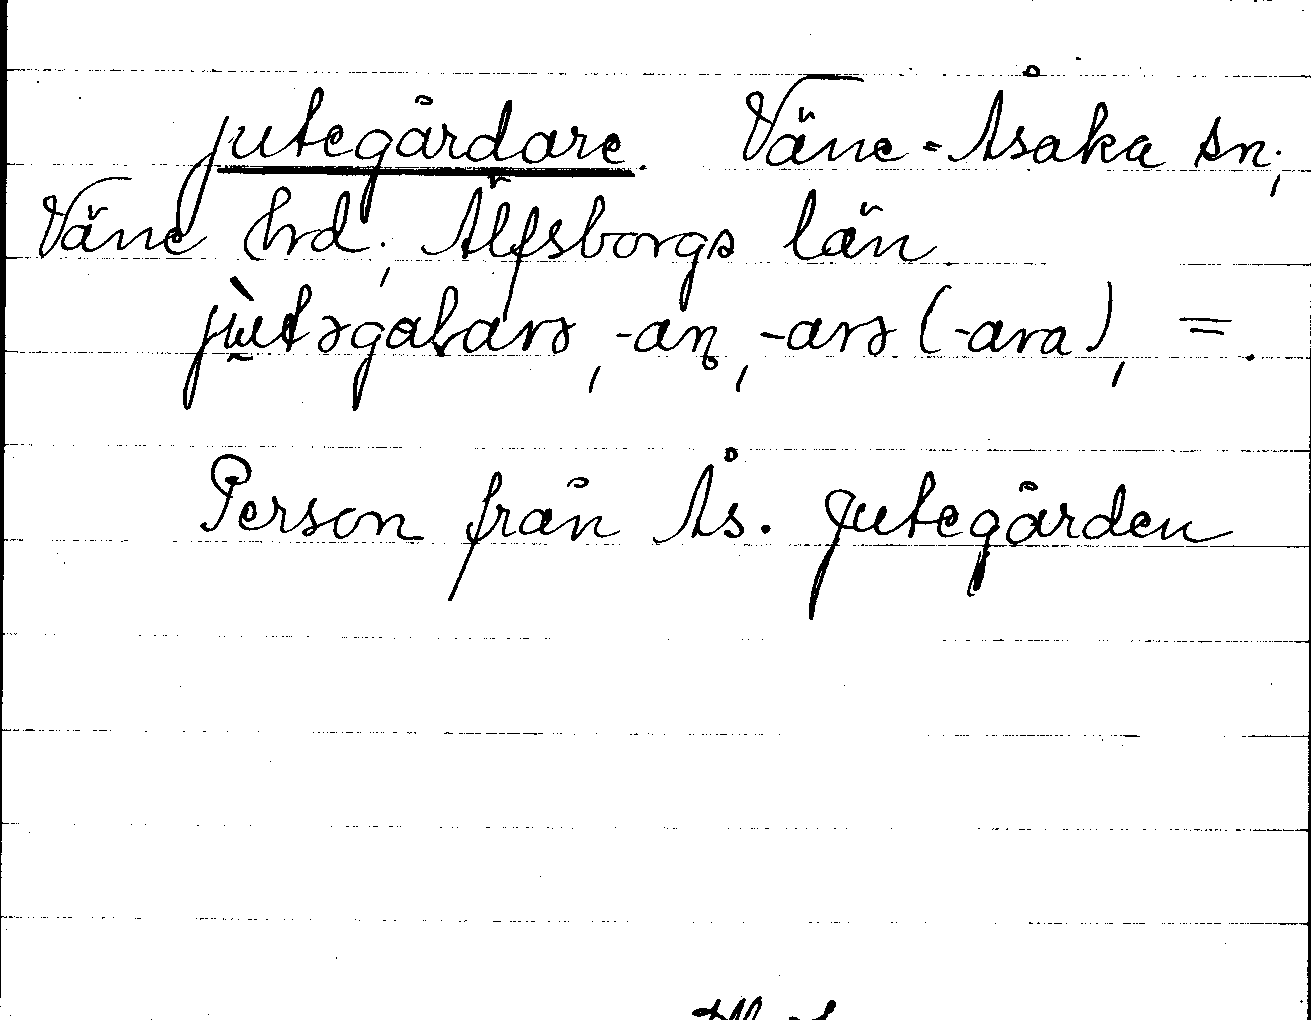 jutegårdare. Väne-Åsaka sn;
Väne hrd; Älfsborgs län.
jùtəgaƚarə, -aņ, -arə (-ara), =.
Person från Ås. Jutegården